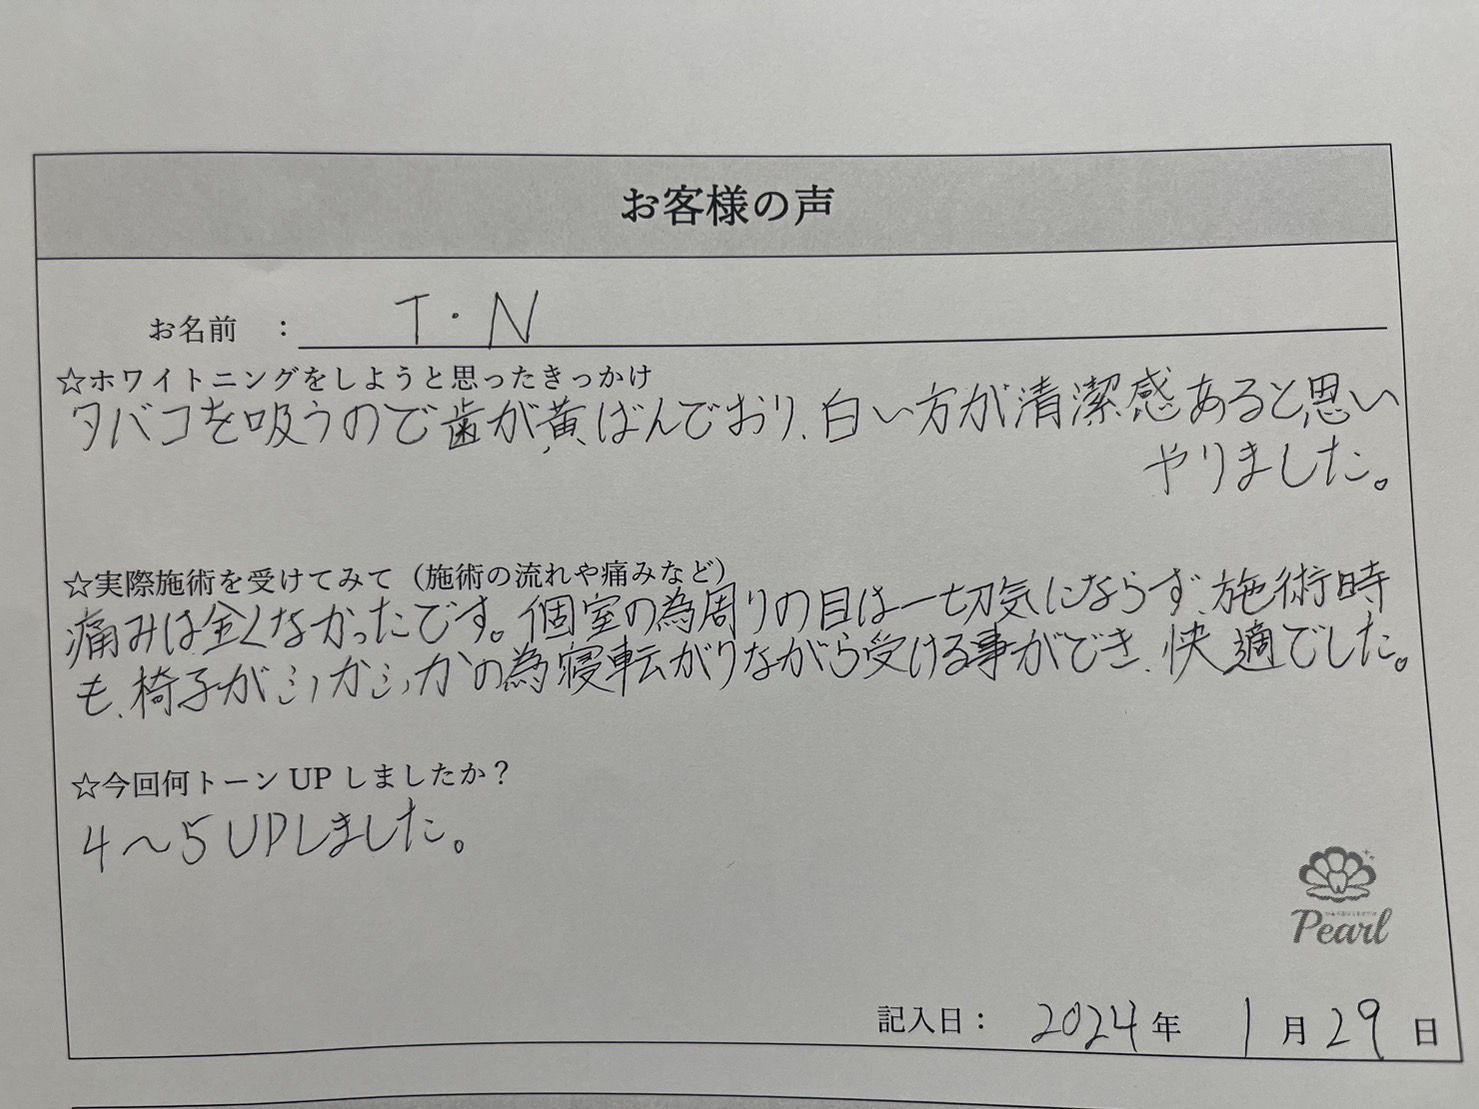 お客様の声
お名前 : T・N
☆ホワイトニングをしようと思ったきっかけ
タバコを吸うので歯が黄ばんでおり、白い方が清潔感あると思い
やりました。
☆実際施術を受けてみて(施術の流れや痛みなど)
痛みは全くなかったです。個室の為周りの目は一切気にならず、施術時
も、椅子がふかふかの為寝転がりながら受ける事ができ、快適でした。
☆今回何トーン UP しましたか?
4〜5UPしました。
Pearl
記入日: 2024 年 1 月 29 日